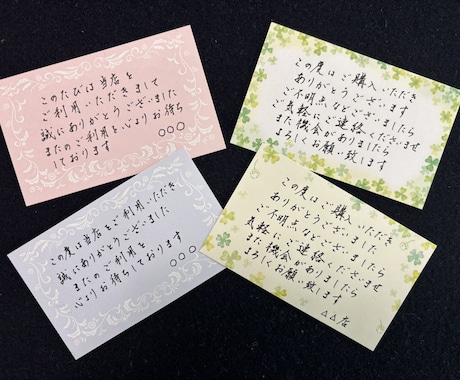 このたびは当店を
ご利用いただきまして
誠にありがとうございました
またのご利用を心よりお待ち
しております
○○○
この度はご購入いただき
ありがとうございます
ご不明点などございましたら
お気軽にご連絡くださいませ
また機会がありましたら
よろしくお願い致します
この度は当店をご利用いただき
誠にありがとうございました
またのご利用を
心よりお待ちしております
○○○
この度はご購入いただき
ありがとうございました
ご不明点などございましたら
気軽にご連絡くださいませ
また機会がありましたら
よろしくお願い致します
△△店